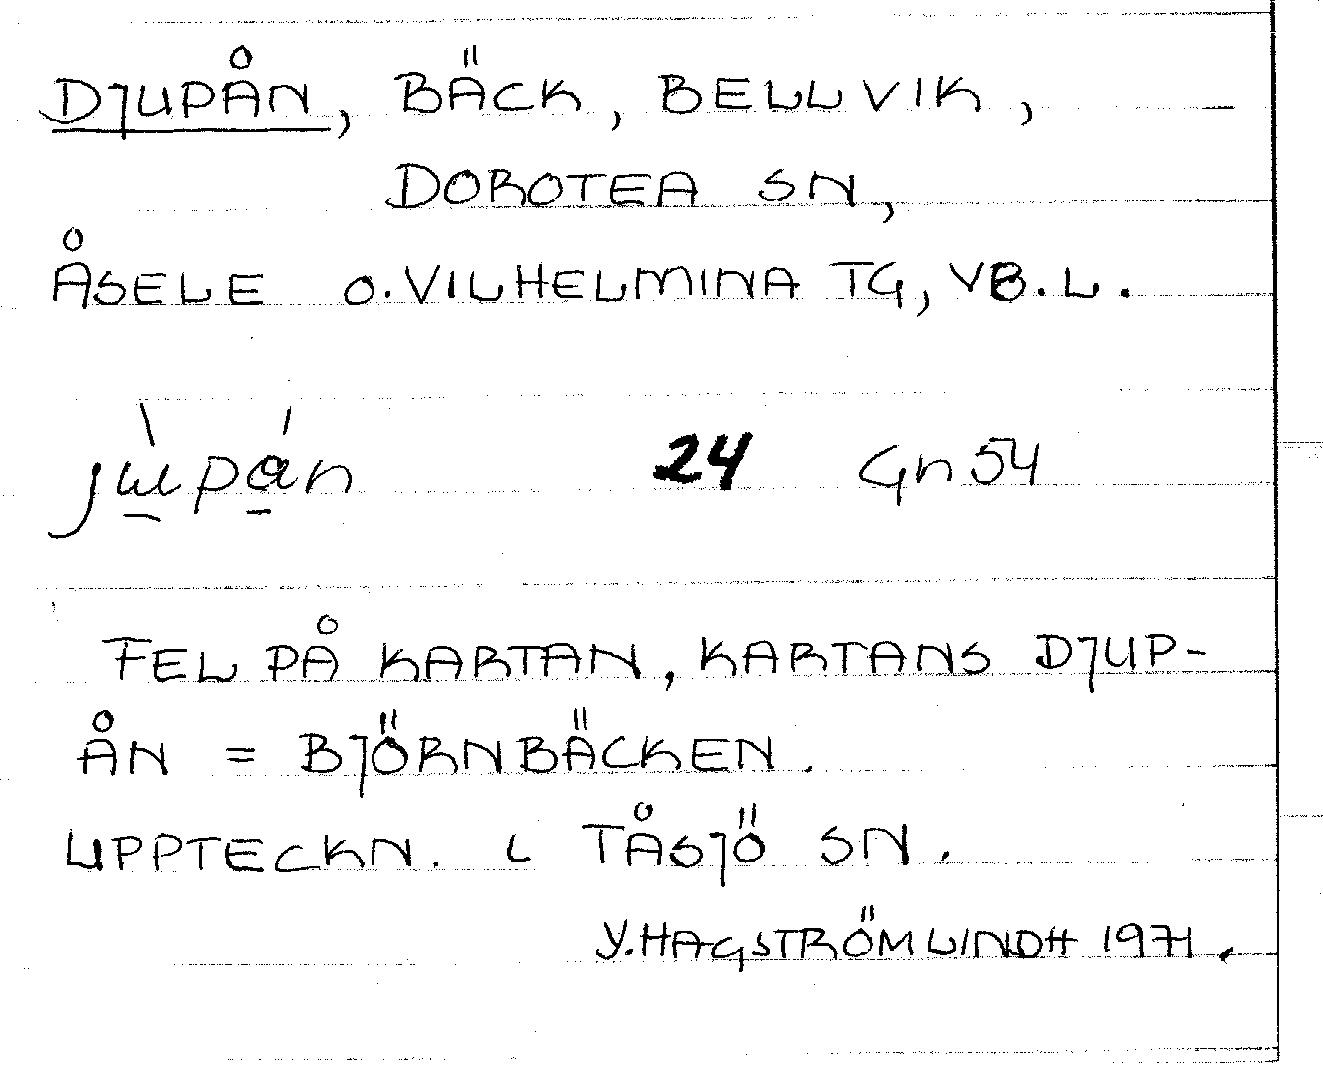 DJUPÅN, BÄCK, BELLVIK,
DOROTEA SN,
ÅSELE O. VILHELMINA TG, VB.L.
24 Gn 54
FEL PÅ KARTAN, KARTANS DJUP-
ÅN = BJÖRNBÄCKEN.
UPPTECKN. I TÅSJÖ SN.
Y. HAGSTRÖM LINDH 1971.